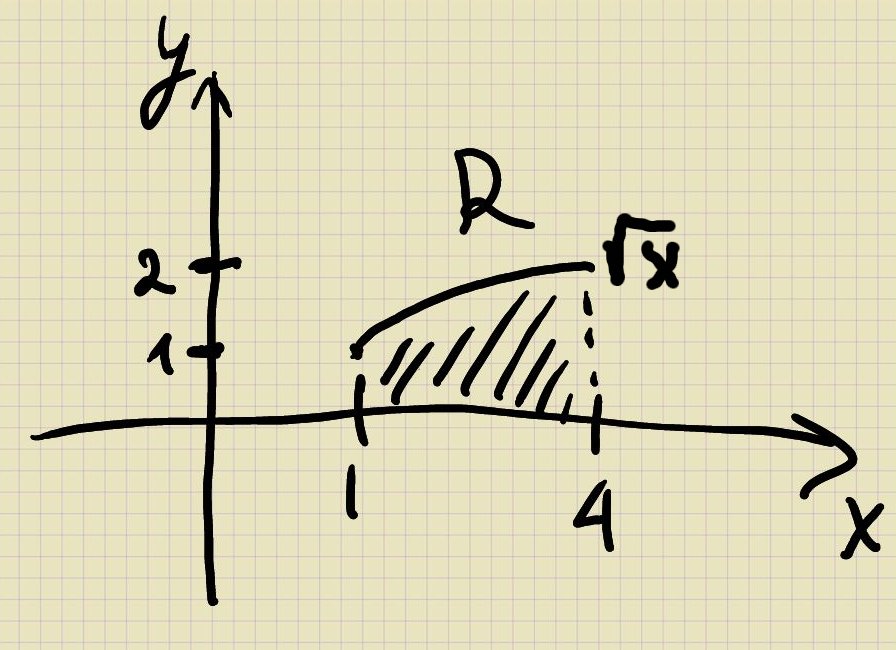 y
R
√x
2
1
1 4
x